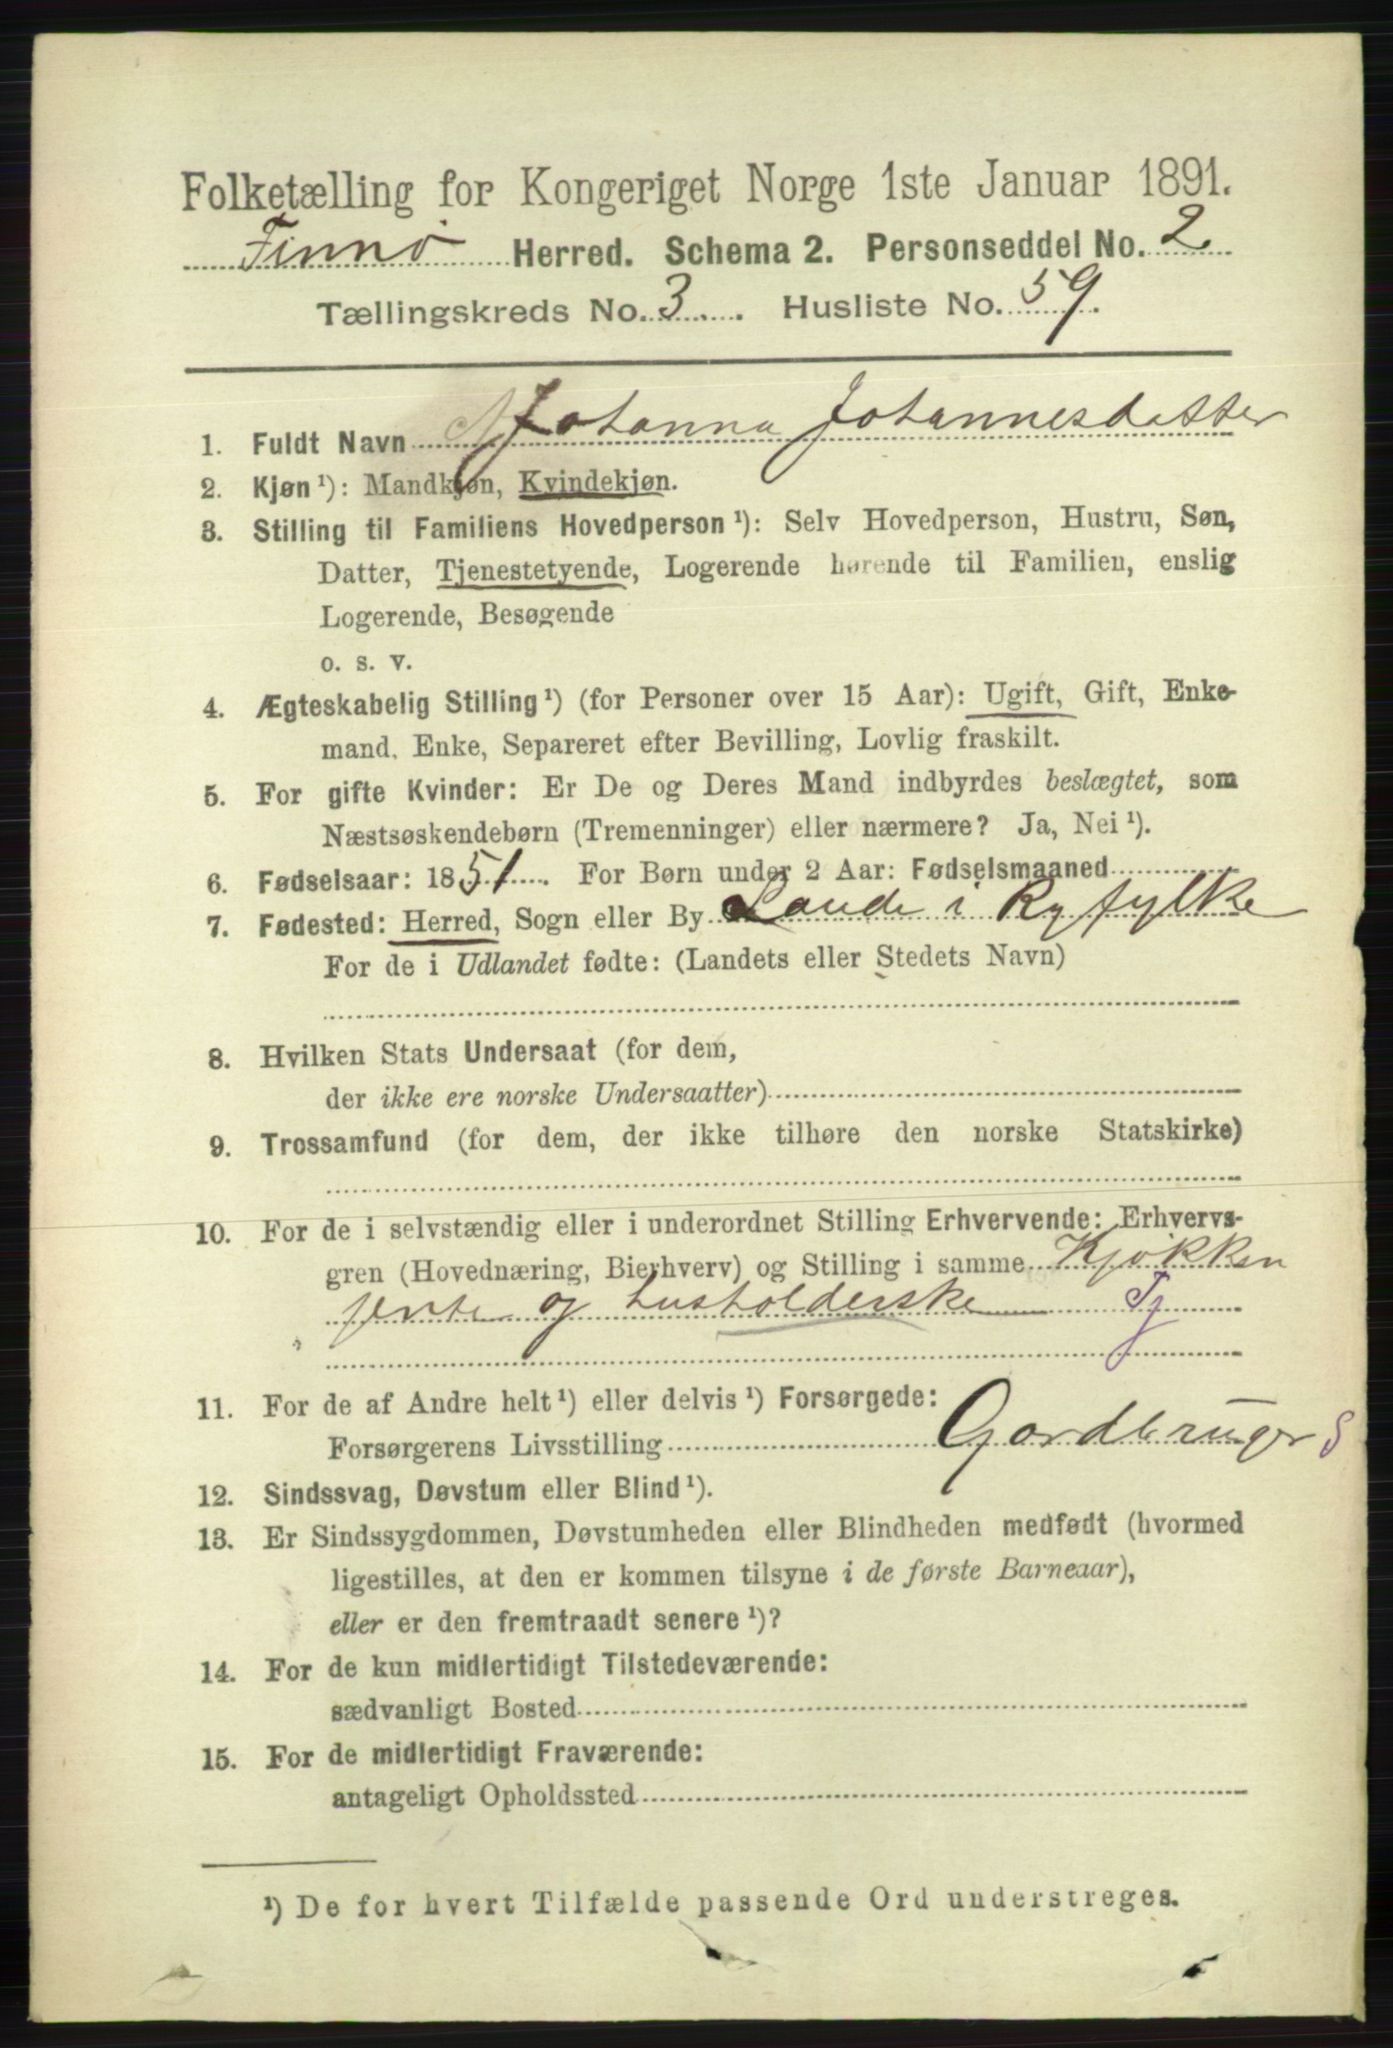 Folketælling for Kongeriget Norge 1ste Januar 1891.
Finnø Herred. Schema 2. Personseddel No. 2
Tællingskreds No. 3. Husliste No. 59.
1. Fuldt Navn Johanna Johannesdatter
2. Kjøn ¹): Mandkjøn, Kvindekjøn.
3. Stilling til Familiens Hovedperson ¹): Selv Hovedperson, Hustru, Søn,
Datter, Tjenestetyende, Logerende hørende til Familien, enslig
Logerende, Besøgende
o. s. v.
4. Ægteskabelig Stilling ¹) (for Personer over 15 Aar): Ugift, Gift, Enke-
mand, Enke, Separeret efter Bevilling, Lovlig fraskilt.
5. For gifte Kvinder: Er De og Deres Mand indbyrdes beslægtet, som
Næstsøskendebørn (Tremenninger) eller nærmere? Ja, Nei ¹).
6. Fødselsaar: 1851. For Børn under 2 Aar: Fødselsmaaned
7. Fødested: Herred, Sogn eller By Saude i Ryfylke
For de i Udlandet fødte: (Landets eller Stedets Navn)
8. Hvilken Stats Undersaat (for dem,
der ikke ere norske Undersaatter)
9. Trossamfund (for dem, der ikke tilhøre den norske Statskirke)
10. For de i selvstændig eller i underordnet Stilling Erhvervende: Erhvervs-
gren (Hovednæring, Bierhverv) og Stilling i samme Kjøkken
jente og husholderske Tj
11. For de af Andre helt ¹) eller delvis ¹) Forsørgede:
Forsørgerens Livsstilling Gardbruger S
12. Sindssvag, Døvstum eller Blind ¹).
13. Er Sindssygdommen, Døvstumheden eller Blindheden medfødt (hvormed
ligestilles, at den er kommen tilsyne i de første Barneaar),
eller er den fremtraadt senere ¹)?
14. For de kun midlertidigt Tilstedeværende:
sædvanligt Bosted
15. For de midlertidigt Fraværende:
antageligt Opholdssted
¹) De for hvert Tilfælde passende Ord understreges.